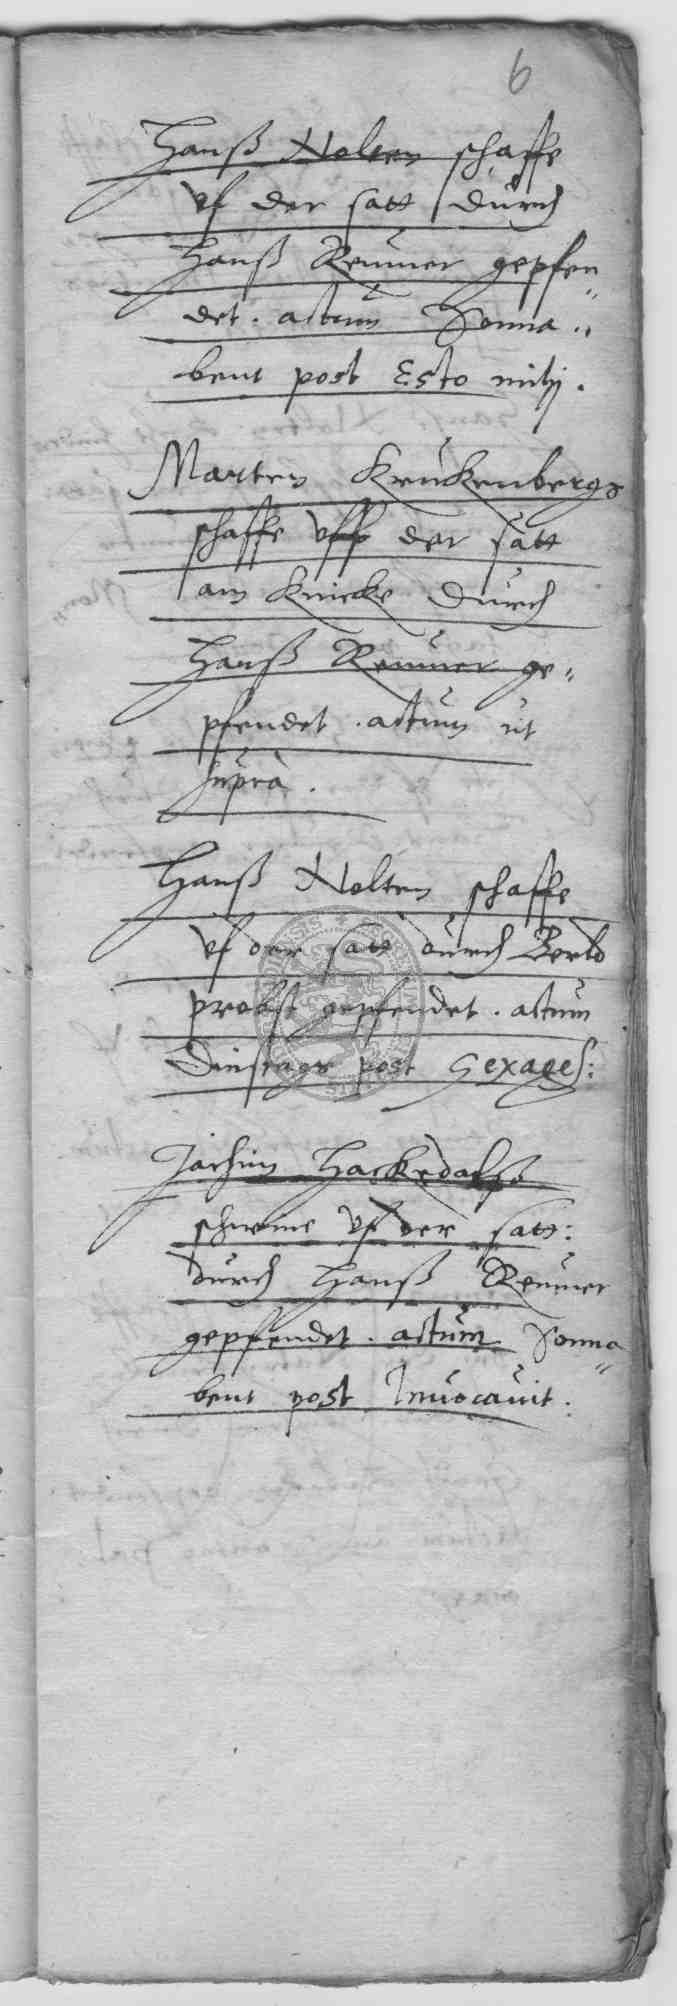 6
Hanß Nolten schaffe
vf der satt durch
Hanß Remmer gepfen„
det. actum Sonna„
bent post Esto mihj.
Marten Kruckenbergs
schaffe vff der satt
am Knicke durch
Hanß Remmer ge„
pfendet. actum ut
supra.
Hanß Nolten schaffe
vf der satt durch Berld
probst gepfendet. actum
Dinstags post Sexages:
Jochim Hackedalß
schweine vf der satt:
durch Hanß Remmer
gepfendet. actum Sonna„
bent post Inuocauit.